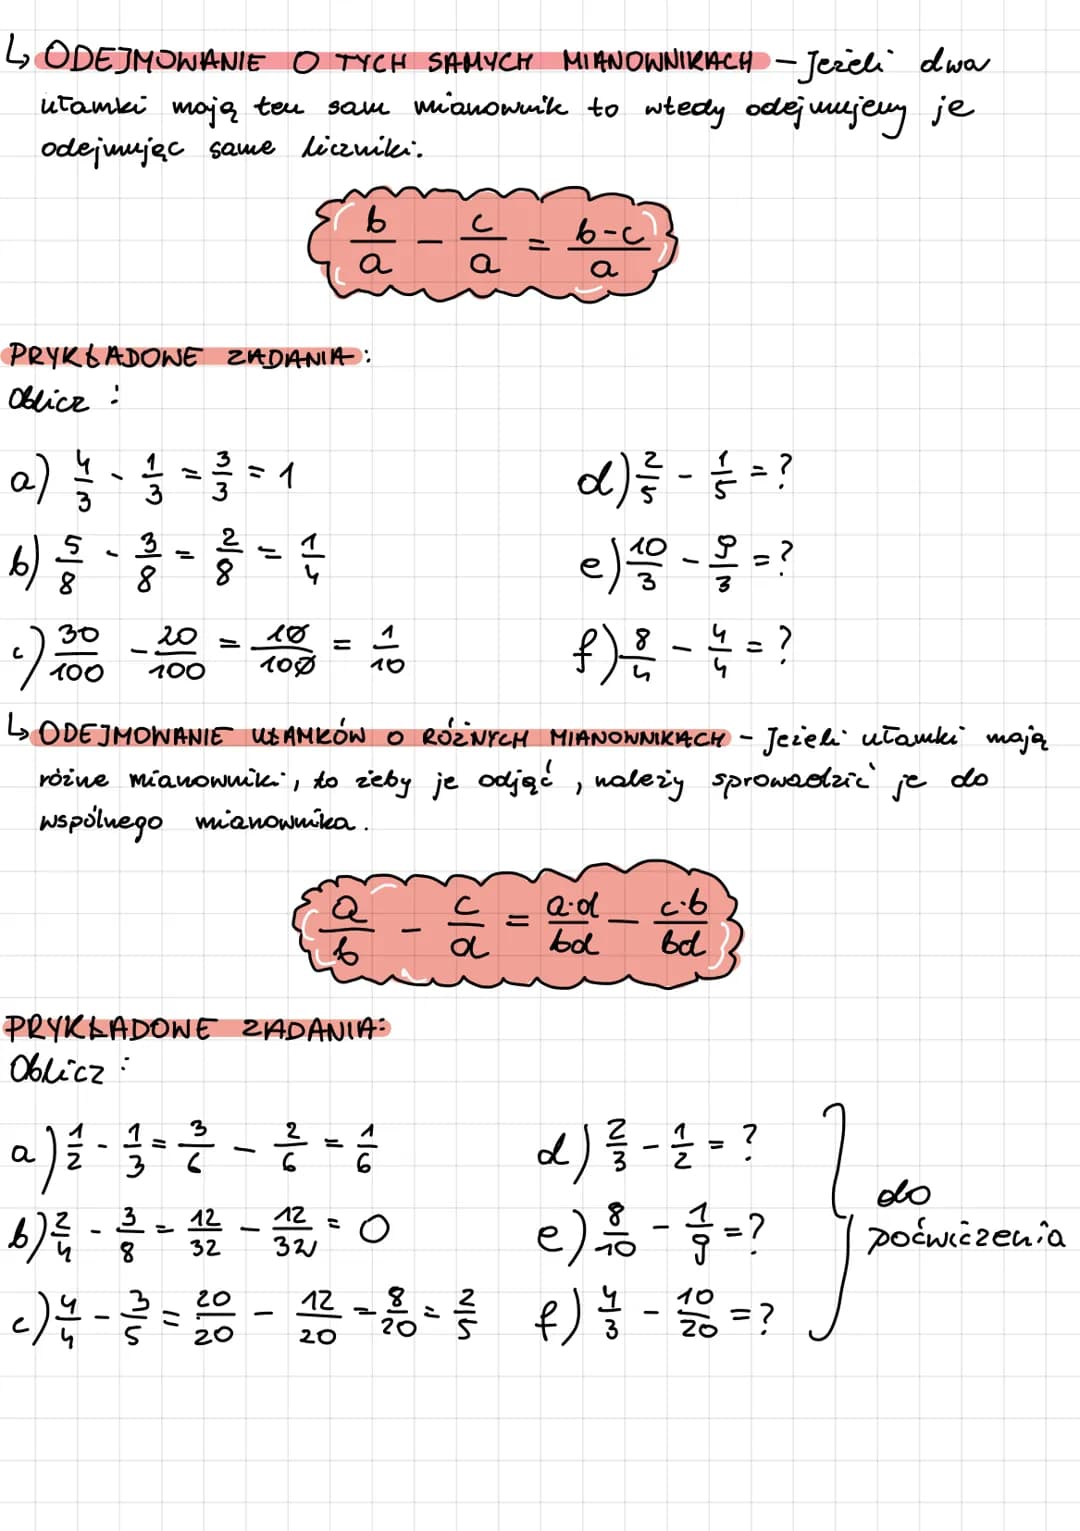 ↳ ODEJMOWANIE O TYCH SAMYCH MIANOWNIKACH - Jeżeli dwa
ułamki mają ten sam mianownik to wtedy odejmujemy je
odejmując same liczniki.
b/a - c/a = b-c/a
PRYKŁADOWE ZADANIA:
Oblicz:
a) 4/3 - 1/3 = 3/3 = 1
d) 2/5 - 1/5 = ?
b) 5/8 - 3/8 = 2/8 = 1/4
e) 10/3 - 9/3 = ?
c) 30/100 - 20/100 = 10/100 = 1/10
f) 8/4 - 4/4 = ?
↳ ODEJMOWANIE UŁAMKÓW O RÓŻNYCH MIANOWNIKACH - Jeżeli ułamki mają
różne mianowniki, to żeby je odjąć, należy sprowadzić je do
wspólnego mianownika.
a/b - c/d = a·d/bd - c·b/bd
PRYKŁADOWE ZADANIA:
Oblicz:
a) 1/2 - 1/3 = 3/6 - 2/6 = 1/6
d) 2/3 - 1/2 = ?
b) 2/4 - 3/8 = 12/32 - 12/32 = 0
e) 8/10 - 1/9 = ?
c) 4/4 - 3/5 = 20/20 - 12/20 = 8/20 = 2/5
f) 4/3 - 10/20 = ?
do
poćwiczenia